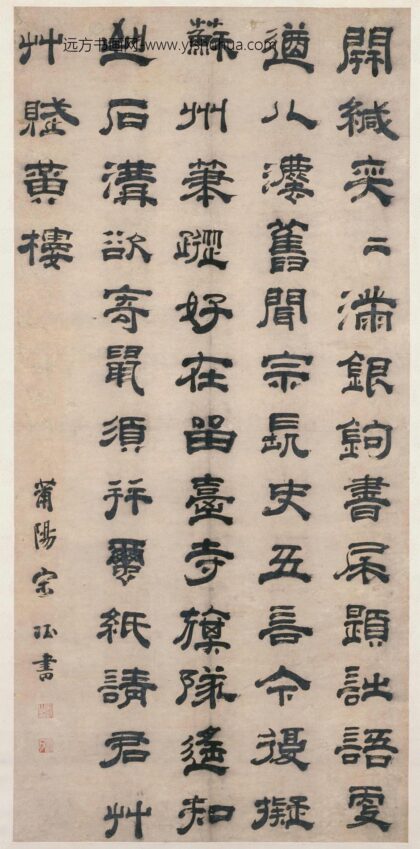 開緘奕二滿銀鉤書尾題詩語更
遒八灋舊聞宗長史五言今復擬
蘇州筆蹤好在留臺寺旗隊遙知
到石溝欲寄鼠須并繭紙請君艸
艸賦黃樓
莆陽宋珏書
远方书画网--www.yfshuhua.com